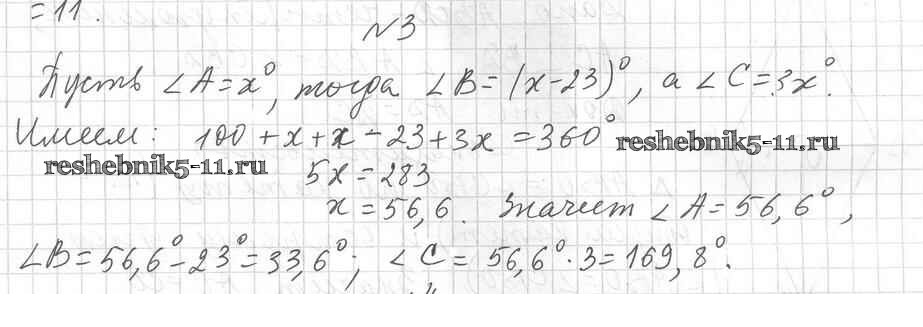 = 11.
№3
Пусть ∠A = x°, тогда ∠B = (x - 23)°, а ∠C = 3x°.
Имеем: 100 + x + x - 23 + 3x = 360°
reshebnik5-11.ru
reshebnik5-11.ru
5x = 283
x = 56,6. Значит ∠A = 56,6°,
∠B = 56,6° - 23° = 33,6°; ∠C = 56,6° · 3 = 169,8°.